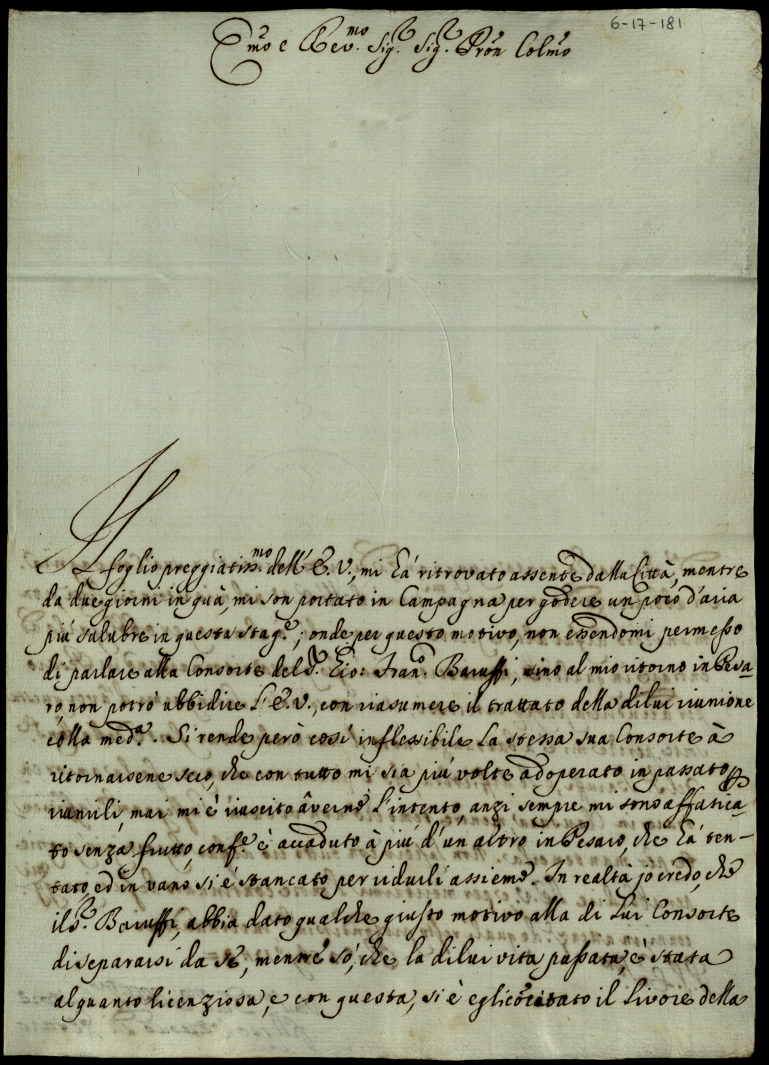 6-17-181
Emo e Revmo Sigr. Sigr. Pron Colmo
Il foglio preggiatissmo dell' E. V., mi hà ritrovato assente dalla Città, mentre
da due giorni in quà, mi son portato in Campagna per godere un poco d'aria
più salubre in questa stage.; onde per questo motivo, non essendomi permesso
di parlare alla Consorte del Sr. Gio: Frano. Baruffi, sino al mio ritorno in Pesa-
ro, non potrò ubbidire l'E. V., con riasumere il trattato della di lui riunione
colla meda. Si rende però così inflessibile la stessa sua Consorte à
ritornarsene seco, che con tutto mi sia più volte adoperato in passato p
riunirli, mai mi è riuscito averne l'intento, anzi sempre mi sono affatica-
to senza frutto, confe. è accaduto à più d'un altro in Pesaro, che hà ten-
tato, ed in vano si è stancato per ridurli assieme. In realtà jo credo, che
il Sr. Baruffi, abbia dato qualche giusto motivo alla di Lui Consorte
di separarsi da sè, mentre sò, che la di lui vita passata, è stata
alquanto licenziosa, e con questa, si è egli il livore della